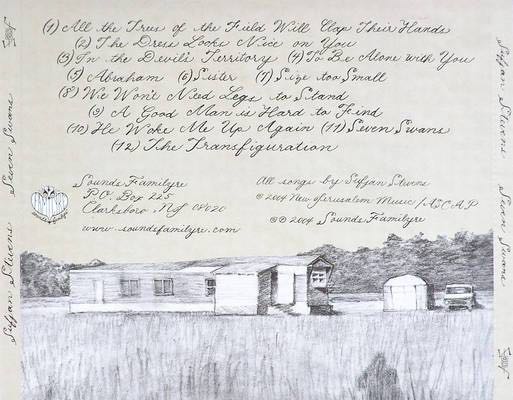 (1) All the Trees of the Field Will Clap Their Hands
(2) The Dress Looks Nice on You
(3) In the Devil's Territory (4) To Be Alone with You
(5) Abraham (6) Sister (7) Size too Small
(8) We Won't Need Legs to Stand
(9) A Good Man is Hard to Find
(10) He Woke Me Up Again (11) Seven Swans
(12) The Transfiguration
Sounds Familyre
P.O. Box 225
Clarksboro, NJ 08020
www.soundsfamilyre.com
All songs by Sufjan Stevens
© 2004 New Jerusalem Music / ASCAP
℗ © 2004 Sounds Familyre
Sufjan Stevens Seven Swans
Sufjan Stevens Seven Swans